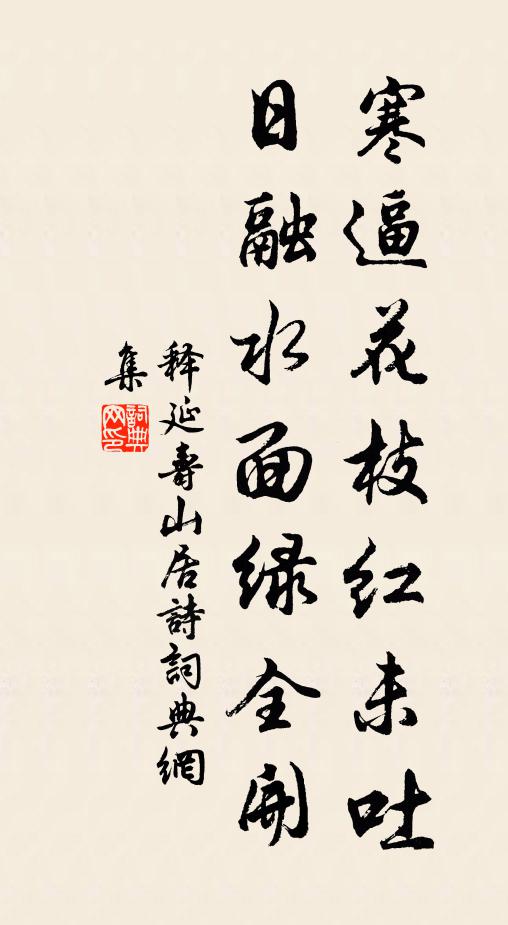 寒逼花枝红未吐
日融水面绿全开
释延寿山居詩詞典網
集
詞典网印